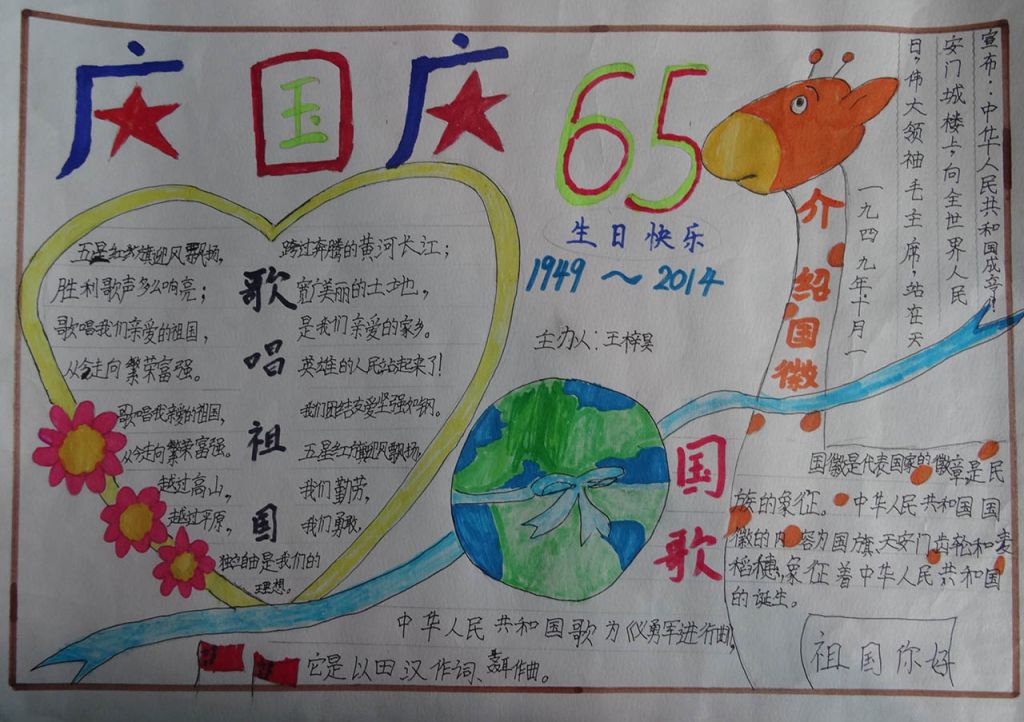 庆国庆
65
生日快乐
1949～2014
主办人：王梓昊
歌唱祖国
五星红旗迎风飘扬，
胜利歌声多么响亮；
歌唱我们亲爱的祖国，
从今走向繁荣富强。
歌唱我亲爱的祖国，
从今走向繁荣富强。
越过高山，
越过平原，
跨过奔腾的黄河长江；
宽广美丽的土地，
是我们亲爱的家乡。
英雄的人民站起来了！
我们团结友爱坚强如钢。
五星红旗迎风飘扬，
我们勤劳，
我们勇敢，
独立自由是我们的
理想。
介绍国徽
一九四九年十月一
日，伟大领袖毛主席，站在天
安门城楼上，向全世界人民
宣布：中华人民共和国成立
国徽是代表国家的徽章是民
族的象征。中华人民共和国国
徽的内容为国旗、天安门齿轮和麦
稻穗，象征着中华人民共和国
的诞生。
国歌
中华人民共和国歌为《义勇军进行曲，
它是以田汉作词、聂耳作曲。
祖国你好